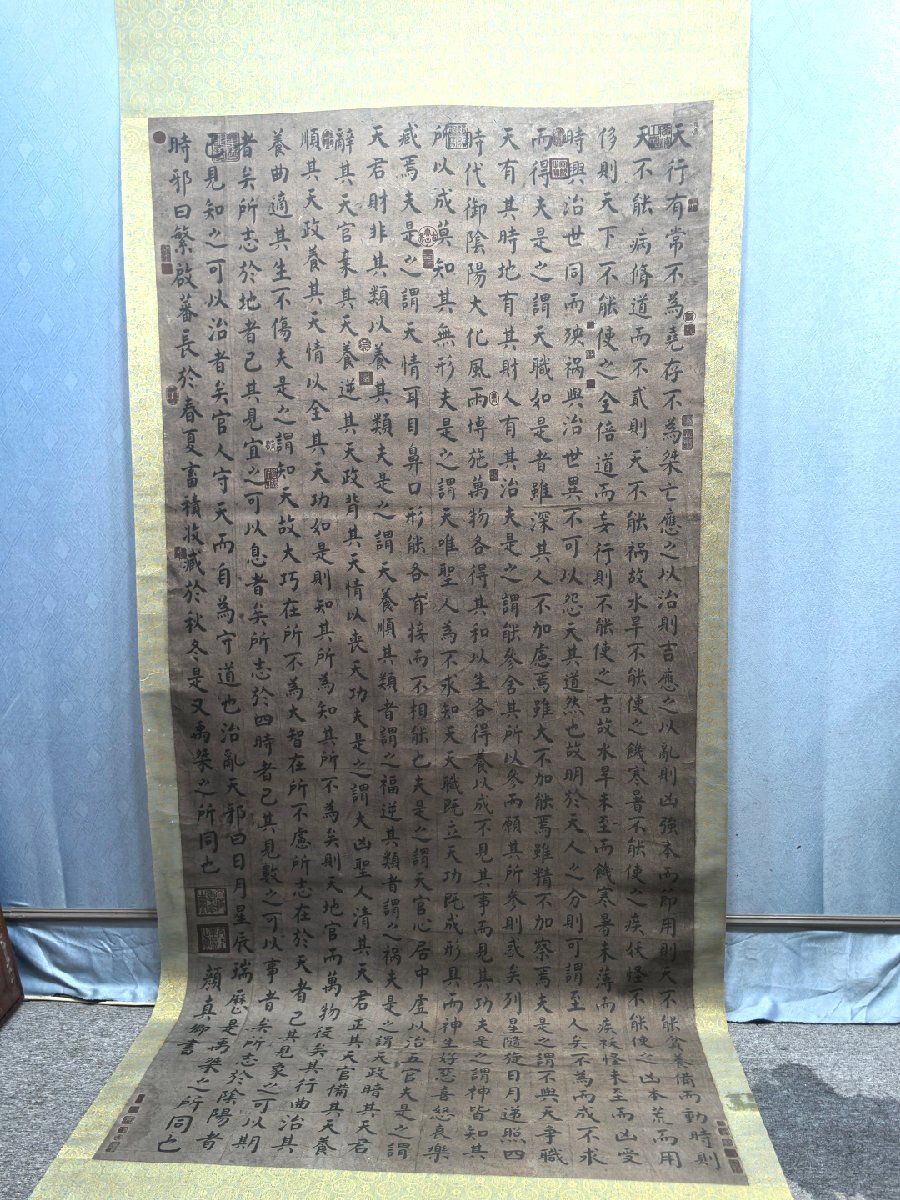 天行有常不為堯存不為桀亡應之以治則吉應之以亂則凶強本而節用則天不能貧養備而動時則
天不能病脩道而不貳則天不能祸故水旱不能使之饑寒暑不能使之疾祅怪不能使之凶本荒而用
侈則天下不能使之全倍道而妄行則不能使之吉故水旱未至而饑寒暑未薄而疾祅怪未至而凶受
時與治世同而殃祸與治世異不可以怨天其道然也故明於天人之分則可謂至人矣不為而成不求
而得夫是之謂天職如是者雖深其人不加慮焉雖大不加能焉雖精不加察焉夫是之謂不與天爭職
天有其時地有其財人有其治夫是之謂能參舍其所以參而願其所參則惑矣列星隨旋日月递照四
時代御陰陽大化風雨博施萬物各得其和以生各得養以成不見其事而見其功夫是之謂神皆知其
所以成莫知其無形夫是之謂天唯聖人為不求知天天職既立天功既成形具而神生好惡喜怒哀樂
臧焉夫是之謂天情耳目鼻口形能各有接而不相能也夫是之謂天官心居中虛以治五官夫是之謂
天君財非其類以養其類夫是之謂天養順其類者謂之福逆其類者謂之祸夫是之謂天政暗其天君
辭其天官棄其天養逆其天政背其天情以喪天功夫是之謂大凶聖人清其天君正其天官備其天養
順其天政養其天情以全其天功如是則知其所為知其所不為矣則天地官而萬物役矣其行曲治其
養曲適其生不傷夫是之謂知天故大巧在所不為大智在所不慮所志在於天者已其見象之可以期
者矣所志於地者己其見宜之可以息者矣所志於四時者己其見數之可以事者矣所志於陰陽者
己見知之可以治者矣官人守天而自為守道也治亂天邪曰日月星辰瑞厯是禹桀之所同也
時邪曰繁啟蕃長於春夏畜積收藏於秋冬是又禹桀之所同也
顏真卿書